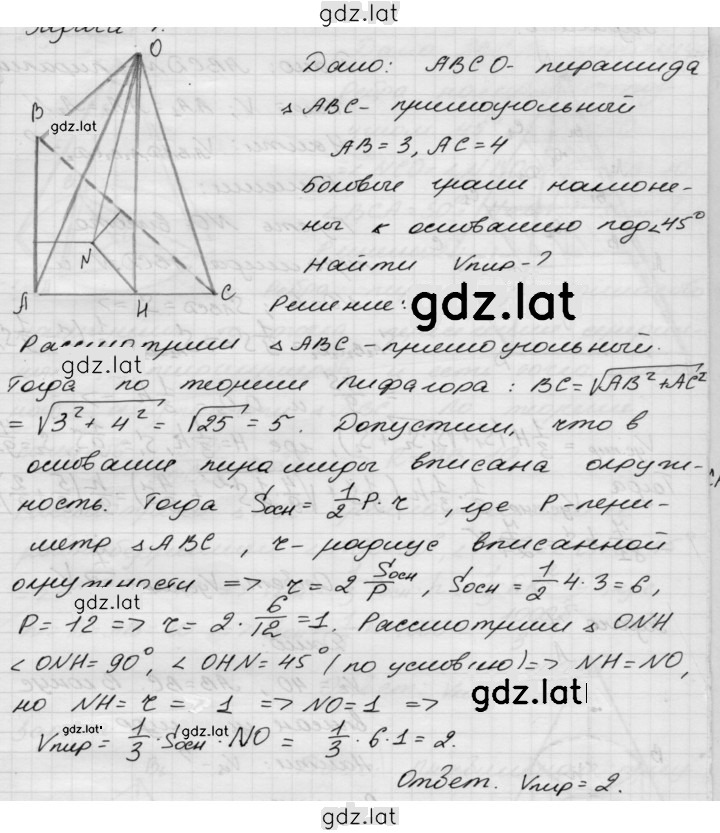 gdz.lat
O
B
gdz.lat
N
A
H
C
Дано: ABCO - пирамида
△ ABC - прямоугольный
AB = 3, AC = 4
Боковые грани наклоне-
ны к основанию под ∠45°
Найти Vпир - ?
Решение:
gdz.lat
Рассмотрим △ ABC - прямоугольный.
gdz.lat
Тогда по теореме Пифагора: BC = √AB² + AC²
= √3² + 4² = √25 = 5. Допустим, что в
основание пирамиды вписана окруж-
ность. Тогда Sосн = 1/2 P · r, где P - пери-
метр △ ABC, r - радиус вписанной
окружности => r = 2 Sосн/P, Sосн = 1/2 4 · 3 = 6,
gdz.lat
P = 12 => r = 2 · 6/12 = 1. Рассмотрим △ ONH
∠ ONH = 90°, ∠ OHN = 45° (по условию) => NH = NO,
но NH = r = 1 => NO = 1 =>
gdz.lat
gdz.lat
Vпир = 1/3 · Sосн · NO = 1/3 · 6 · 1 = 2.
Ответ. Vпир = 2.
gdz.lat